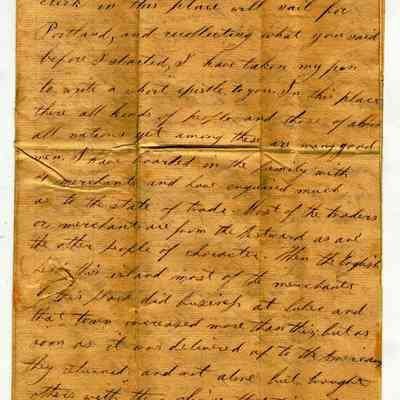 clerk in this place will sail for
Portland, and recollecting what you said
before I started, I have taken my pen
to write a short epistle to you. In this place
there all kinds of people and those of almost
all nations yet among these are many good
men. I have boarded in the family with
a merchant and have enquired much
as to the state of trade. Most of the traders
or merchants are from the Westward as are
the other people of character. When the English
this island most of the merchants
of this place did business at
that town increased more than this; but as
soon as it was delivered up to the Americans
they returned and not alone but brought
others with